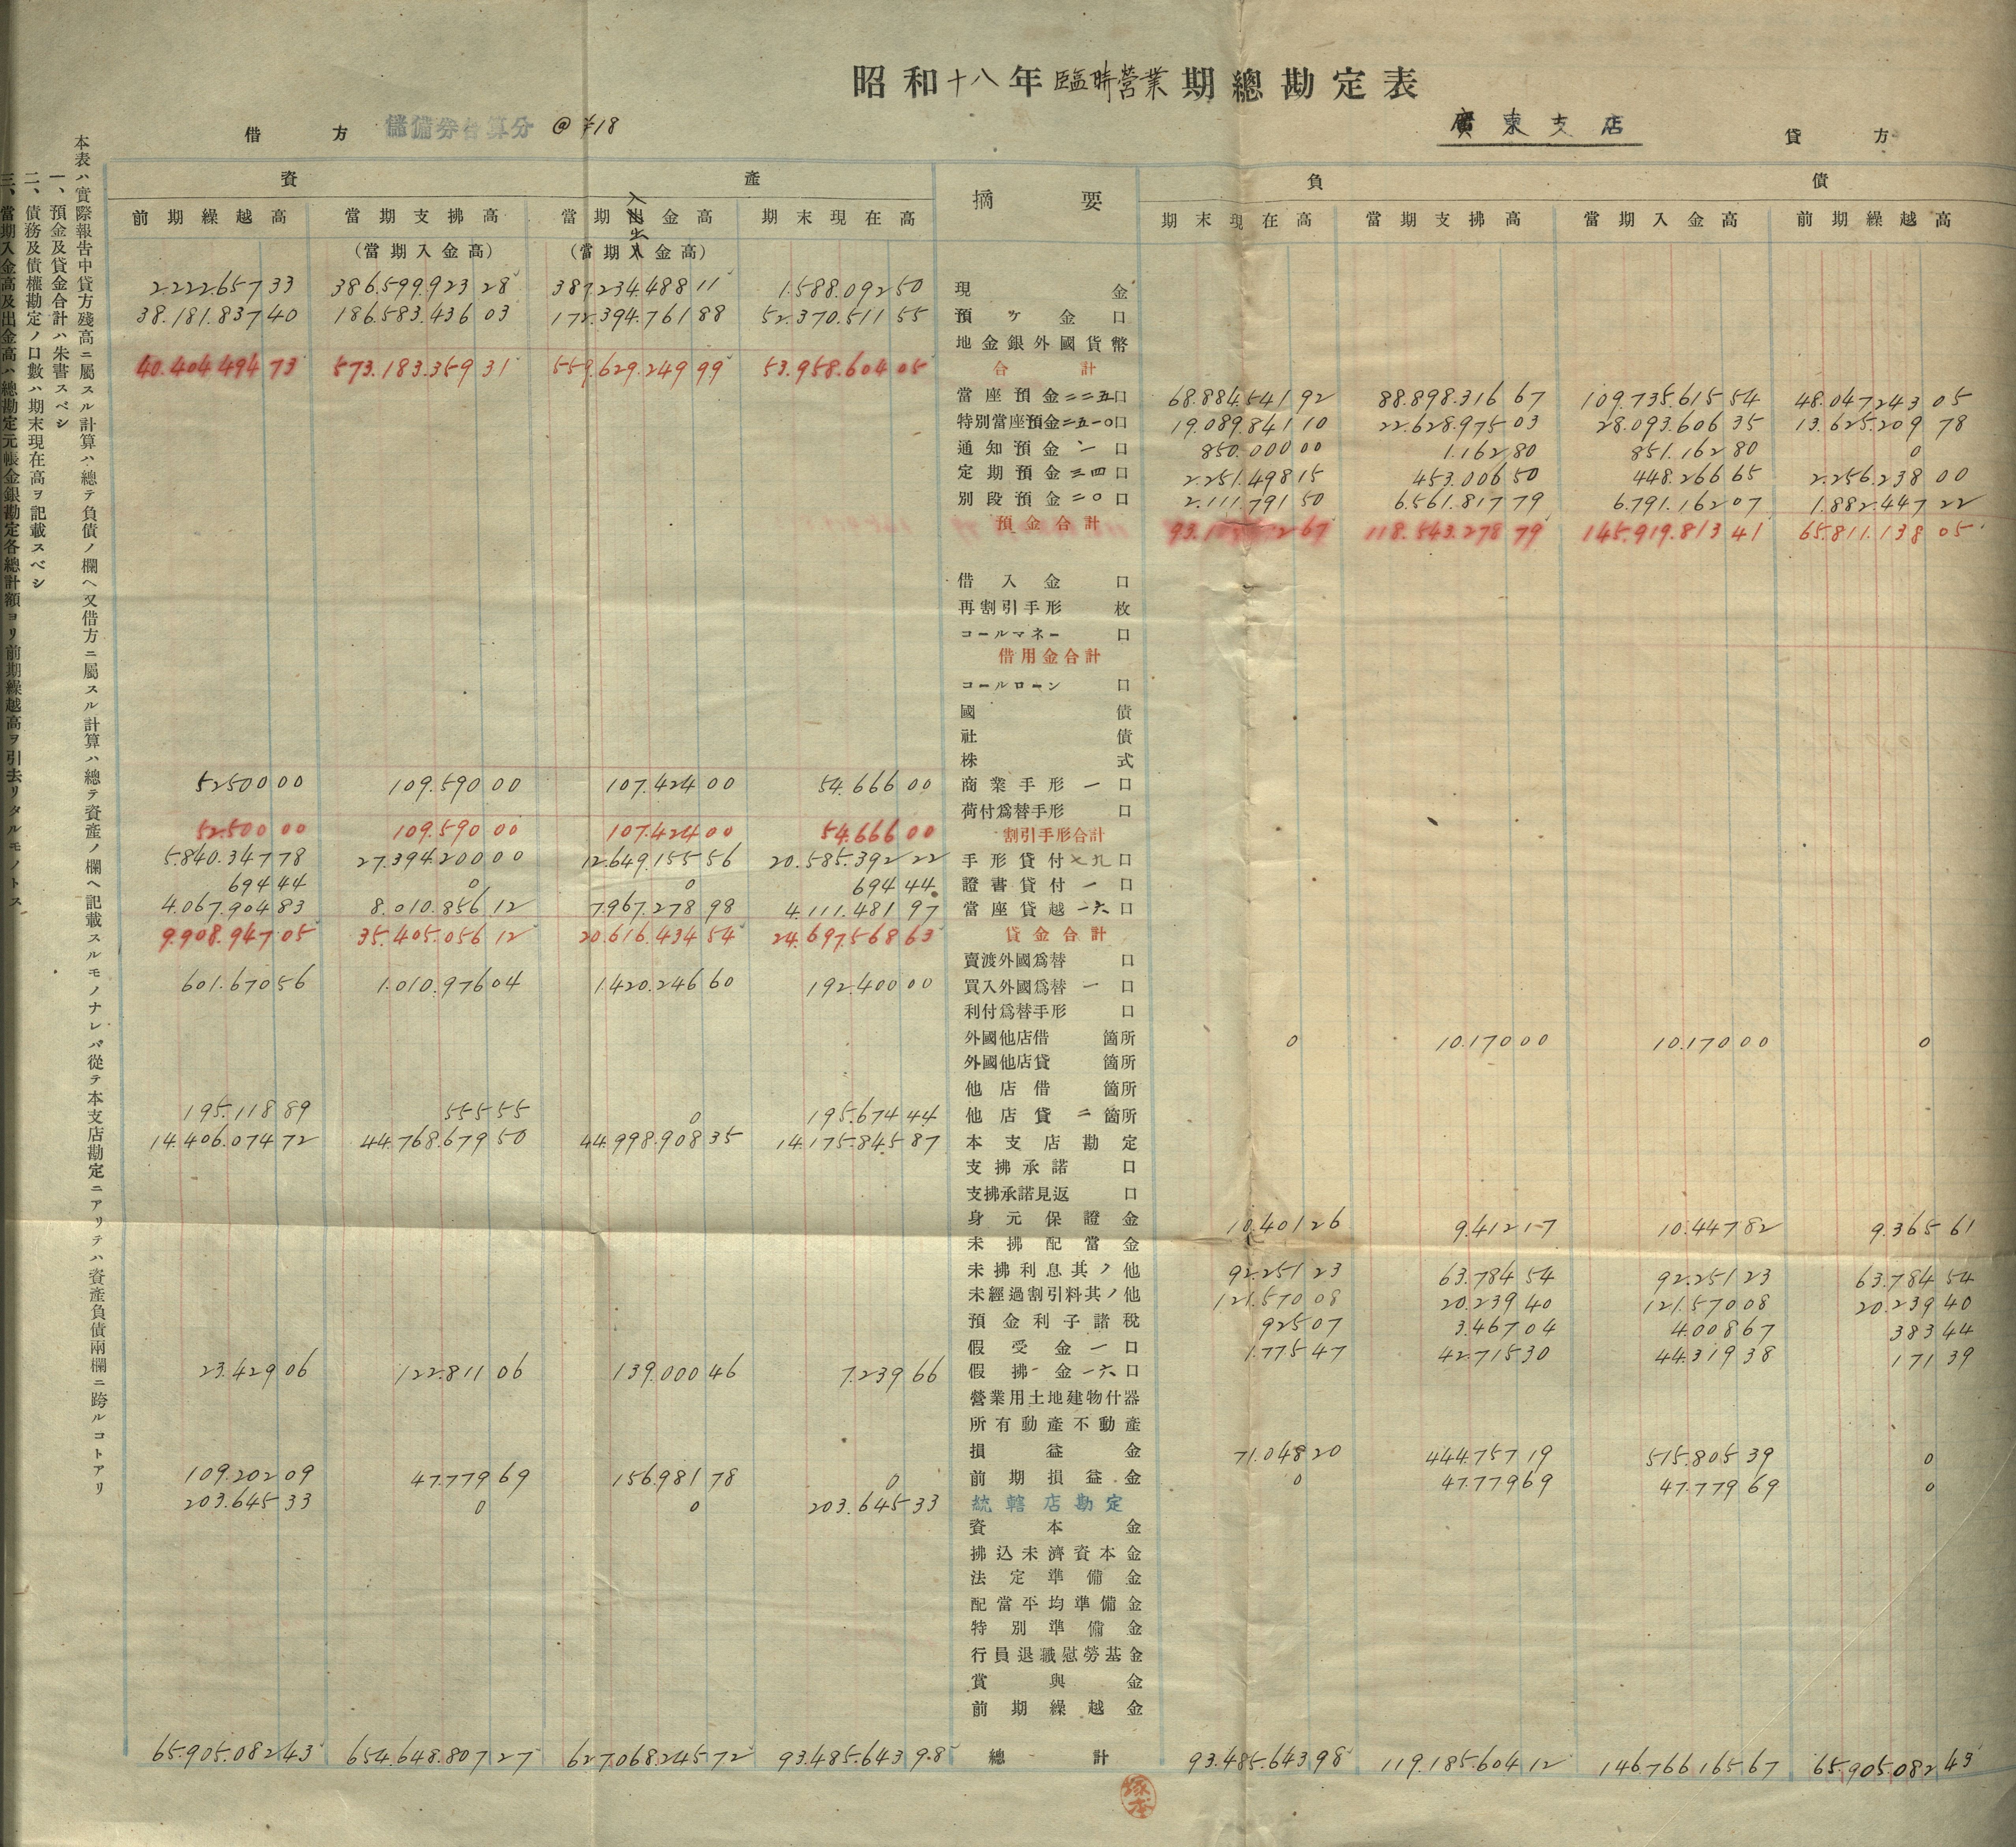 昭和十八年臨時營業期總勘定表
借方 儲備券合算分 @¥18 廣東支店 貸方
資產 摘要 負債
前期繰越高 當期支拂高 當期入金高 期末現在高 期末現在高 當期支拂高 當期入金高 前期繰越高
(當期入金高) (當期出金高)
2.222.657 33 386.599.923 28 387.234.488 11 1.588.092 50 現金
38.181.837 40 186.583.436 03 172.394.761 88 52.370.511 55 預ケ金 口
地金銀外國貨幣
40.404.494 73 573.183.359 31 559.629.249 99 53.958.604 05 合計
當座預金二二五口 68.884.541 92 88.898.316 67 109.735.615 54 48.047.243 05
特別當座預金二五一〇口 19.089.841 10 22.628.975 03 28.093.606 35 13.625.209 78
通知預金一口 850.000 00 1.162 80 851.162 80 0
定期預金三四口 2.251.498 15 453.006 50 448.266 65 2.256.238 00
別段預金二〇口 2.111.791 50 6.561.817 79 6.791.162 07 1.882.447 22
預金合計 118.543.278 79 145.919.813 41 65.811.138 05
借入金 口
再割引手形 枚
コールマネー 口
借用金合計
コールローン 口
國債
社債
株式
52500 00 109.590 00 107.424 00 54.666 00 商業手形一口
荷付爲替手形 口
52.500 00 109.590 00 107.424 00 54.666 00 割引手形合計
5.840.347 78 27.394.200 00 12.649.155 56 20.585.392 22 手形貸付七九口
694 44 0 0 694 44 證書貸付一口
4.067.904 83 8.010.856 12 7.967.278 98 4.111.481 97 當座貸越一六口
9.908.947 05 35.405.056 12 20.616.434 54 24.697.568 63 貸金合計
賣渡外國爲替 口
601.670 56 1.010.976 04 1.420.246 60 192.400 00 買入外國爲替一口
利付爲替手形 口
外國他店借 箇所 0 10.170 00 10.170 00 0
外國他店貸 箇所
他店借 箇所
195.118 89 555 55 0 195.674 44 他店貸二箇所
14.406.074 72 44.768.679 50 44.998.908 35 14.175.845 87 本支店勘定
支拂承諾 口
支拂承諾見返 口
身元保證金 10.401 26 9.412 17 10.447 82 9.365 61
未拂配當金
未拂利息其ノ他 92.251 23 63.784 54 92.251 23 63.784 54
未經過割引料其ノ他 121.570 08 20.239 40 121.570 08 20.239 40
預金利子諸稅 925 07 3.467 04 4.008 67 383 44
假受金一口 1.775 47 42.715 30 44.319 38 171 39
23.429 06 122.811 06 139.000 46 7.239 66 假拂金一六口
營業用土地建物什器
所有動產不動產
損益金 71.048 20 444.757 19 515.805 39 0
109.202 09 47.779 69 156.981 78 0 前期損益金 0 47.779 69 47.779 69 0
203.645 33 0 0 203.645 33 統轄店勘定
資本金
拂込未濟資本金
法定準備金
配當平均準備金
特別準備金
行員退職慰勞基金
賞與金
前期繰越金
65.905.082 43 654.648.807 27 627.068.245 72 93.485.643 98 總計 93.485.643 98 119.185.604 12 146.766.165 67 65.905.082 43
塚本
本表ハ實際報告中貸方殘高ニ屬スル計算ハ總テ負債ノ欄ヘ又借方ニ屬スル計算ハ總テ資產ノ欄ヘ記載スルモノナレバ從テ本支店勘定ニアリテハ資產負債兩欄ニ跨ルコトアリ
一、預金及貸金合計ハ朱書スベシ
二、債務及債權勘定ノ口數ハ期末現在高ヲ記載スベシ
三、當期入金高及出金高ハ總勘定元帳金銀勘定各總計額ヨリ前期繰越高ヲ引去リタルモノトス